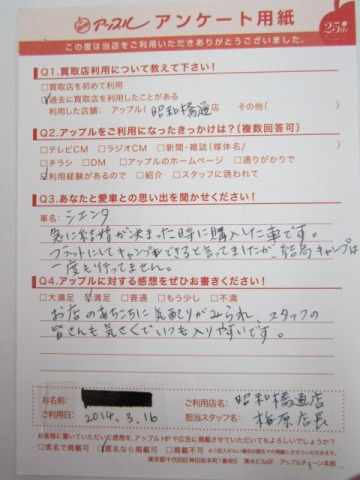 アップル アンケート用紙 25th
この度は当店をご利用いただきありがとうございました。
Q1.買取店利用について教えて下さい!
□買取店を初めて利用
☑過去に買取店を利用したことがある
利用した店舗:アップル(昭和橋通)店 その他( )
Q2.アップルをご利用になったきっかけは?(複数回答可)
□テレビCM □ラジオCM □新聞・雑誌(媒体名/ )
□チラシ □DM □アップルのホームページ □通りがかりで
☑利用経験があるので □紹介 □スタッフに誘われて
Q3.あなたと愛車との思い出を聞かせください!
車名:シエンタ
急に結婚が決まった時に購入した車です。
フラットにしてキャンプもできると言ってましたが、結局キャンプは
一度も行ってません。
Q4.アップルに対する感想をぜひお書きください!
□大満足 ☑満足 □普通 □もう少し □不満
お店のあちこちに気配りがみられ、スタッフの
皆さんも気さくでいつも入りやすいです。
お名前:
ご利用店名:昭和橋通店
ご利用日:2014.3.16
担当スタッフ名:梅原店長
お客様に書いていただいた感想を、アップルHPや広告に掲載させていただいてもよろしいでしょうか?
□実名で掲載可 ☑匿名なら掲載可 □掲載不可
東京都千代田区神田岩本町1番地5 清水ビル6F アップルチェーン本部